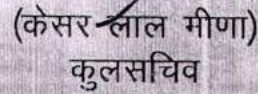 (केसर लाल मीणा)
कुलसचिव